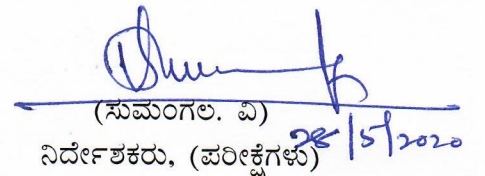 (ಸುಮಂಗಲ. ವಿ)
ನಿರ್ದೇಶಕರು, (ಪರೀಕ್ಷೆಗಳು) 28/5/2020